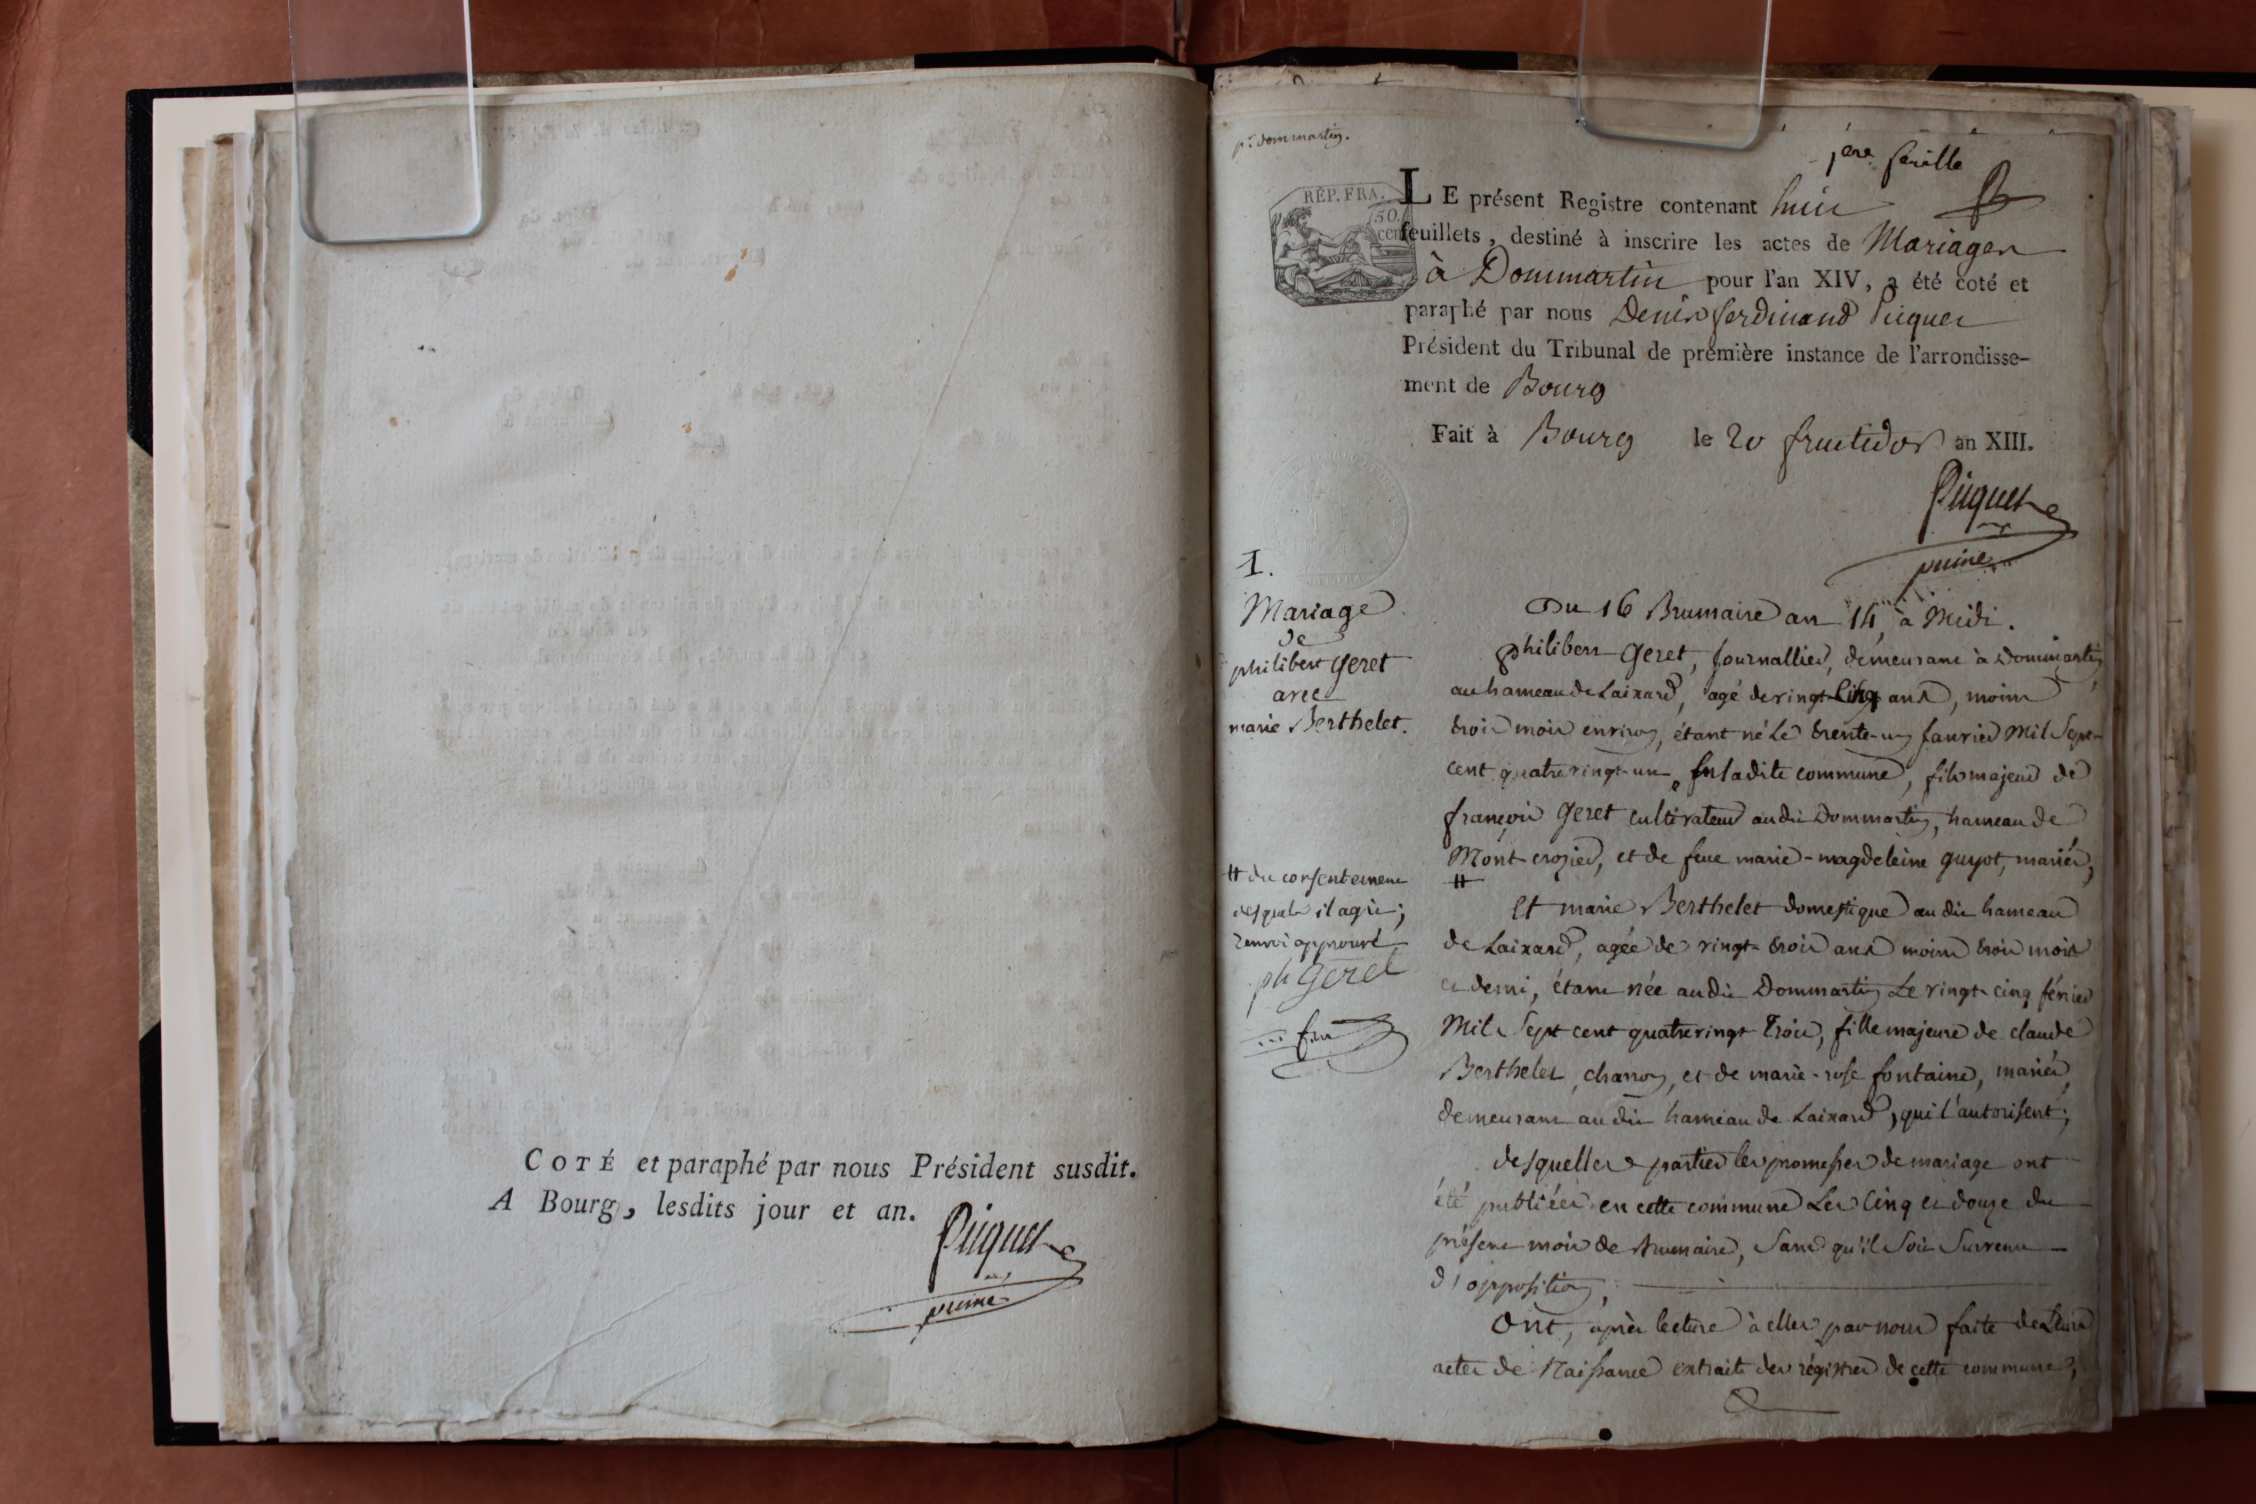 COTÉ et paraphé par nous Président susdit.
A Bourg, lesdits jour et an.
Picquet
prime
pr. dommartin.
1ere feuille
REP. FRA.
50.
cen
LE présent Registre contenant huit
feuillets, destiné à inscrire les actes de Mariages
à Dommartin pour l'an XIV, a été coté et
paraphé par nous Denis ferdinand Picquet
Président du Tribunal de première instance de l'arrondisse-
ment de Bourg
Fait à Bourg le 20 fructidor an XIII.
Picquet
prime
1.
Mariage
de
philibert Geret
avec
marie Berthelet.
Du 16 Brumaire an 14, à Midi.
philibert Geret, Journallier, demeurant à Dommartin
au hameau de Laixard, agé de vingt-Cinq ans, moins
trois mois environ, étant né le trente-un Janvier Mil Sept-
cent quatrevingt-un, En ladite commune, fils majeur de
françois Geret cultivateur audit Dommartin, hameau de
Mont-crozier, et de feue marie-magdeleine guyot, mariés,
#
# du consentement
desquels il agit;
renvoi approuvé
ph Geret
Et marie Berthelet domestique audit hameau
de Laixard, agée de vingt-trois ans moins trois mois
et demi, étant née audit Dommartin Le vingt-cinq février
Mil Sept cent quatrevingt Trois, fille majeure de claude
Berthelet, charron, et de marie-rose fontaine, mariés,
demeurant audit hameau de Laixard, qui l'autorisent;
desquelles parties les promesses de mariage ont
été publiées en cette commune Les Cinq et douze du
présent mois de Brumaire, Sans qu'il Soit Survenu
d'opposition,
Ont, après lecture à elles par nous faite de Leurs
actes de Naissance extraits des régistres de cette commune,